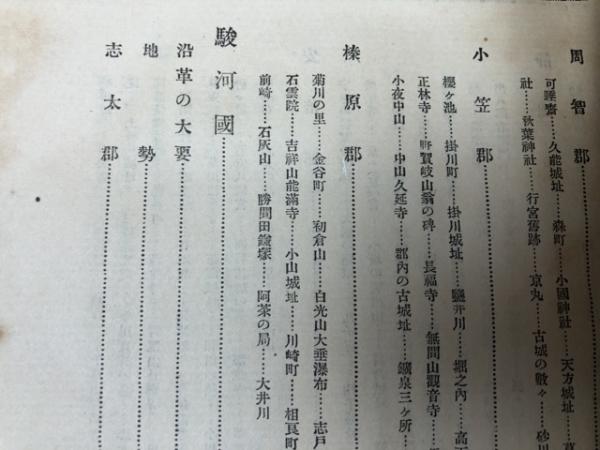 周智郡
可睡齋……久能城址……森町……小國神社……天方城址
社……秋葉神社……行宮舊跡……京丸……古城の數々……砂川
小笠郡
櫻ヶ池……掛川町……掛川城址……鹽井川……堀之內……高
正林寺……野賀岐山翁の碑……長福寺……無間山觀音寺
小夜中山……中山久延寺……郡內の古城址……鑛泉三ヶ所
榛原郡
菊川の里……金谷町……初倉山……白光山大垂瀑布……志戶
石雲院……吉祥山能滿寺……小山城址……川崎町……相良町
前崎……石灰山……勝間田鎧塚……阿茶の局……大井川
駿河國
沿革の大要
地勢
志太郡